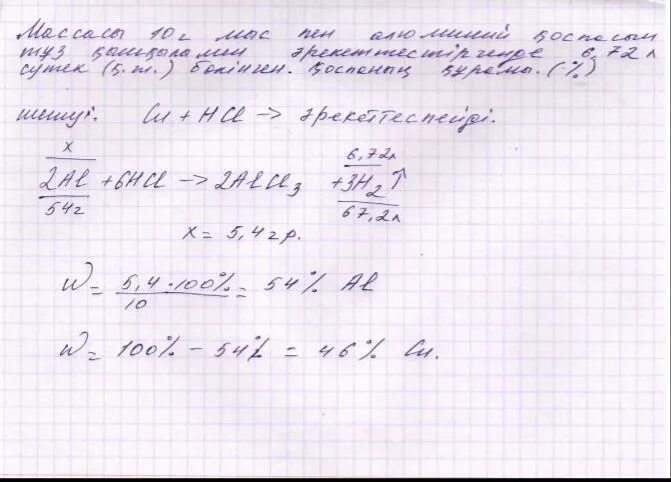 Массасы 10г мыс пен алюминий қоспасын
тұз қышқыламен әрекеттестіргенде 6,72л
сутек (қ.ж.) бөлінген. Қоспаның құрамы. (%)
шешуі. Cu + HCl → әрекеттеспейді.
x 6,72л
2Al + 6HCl → 2AlCl3 + 3H2↑
54г 67,2л
x = 5,4гр.
W = 5,4 · 100% / 10 = 54% Al
W = 100% - 54% = 46% Cu.